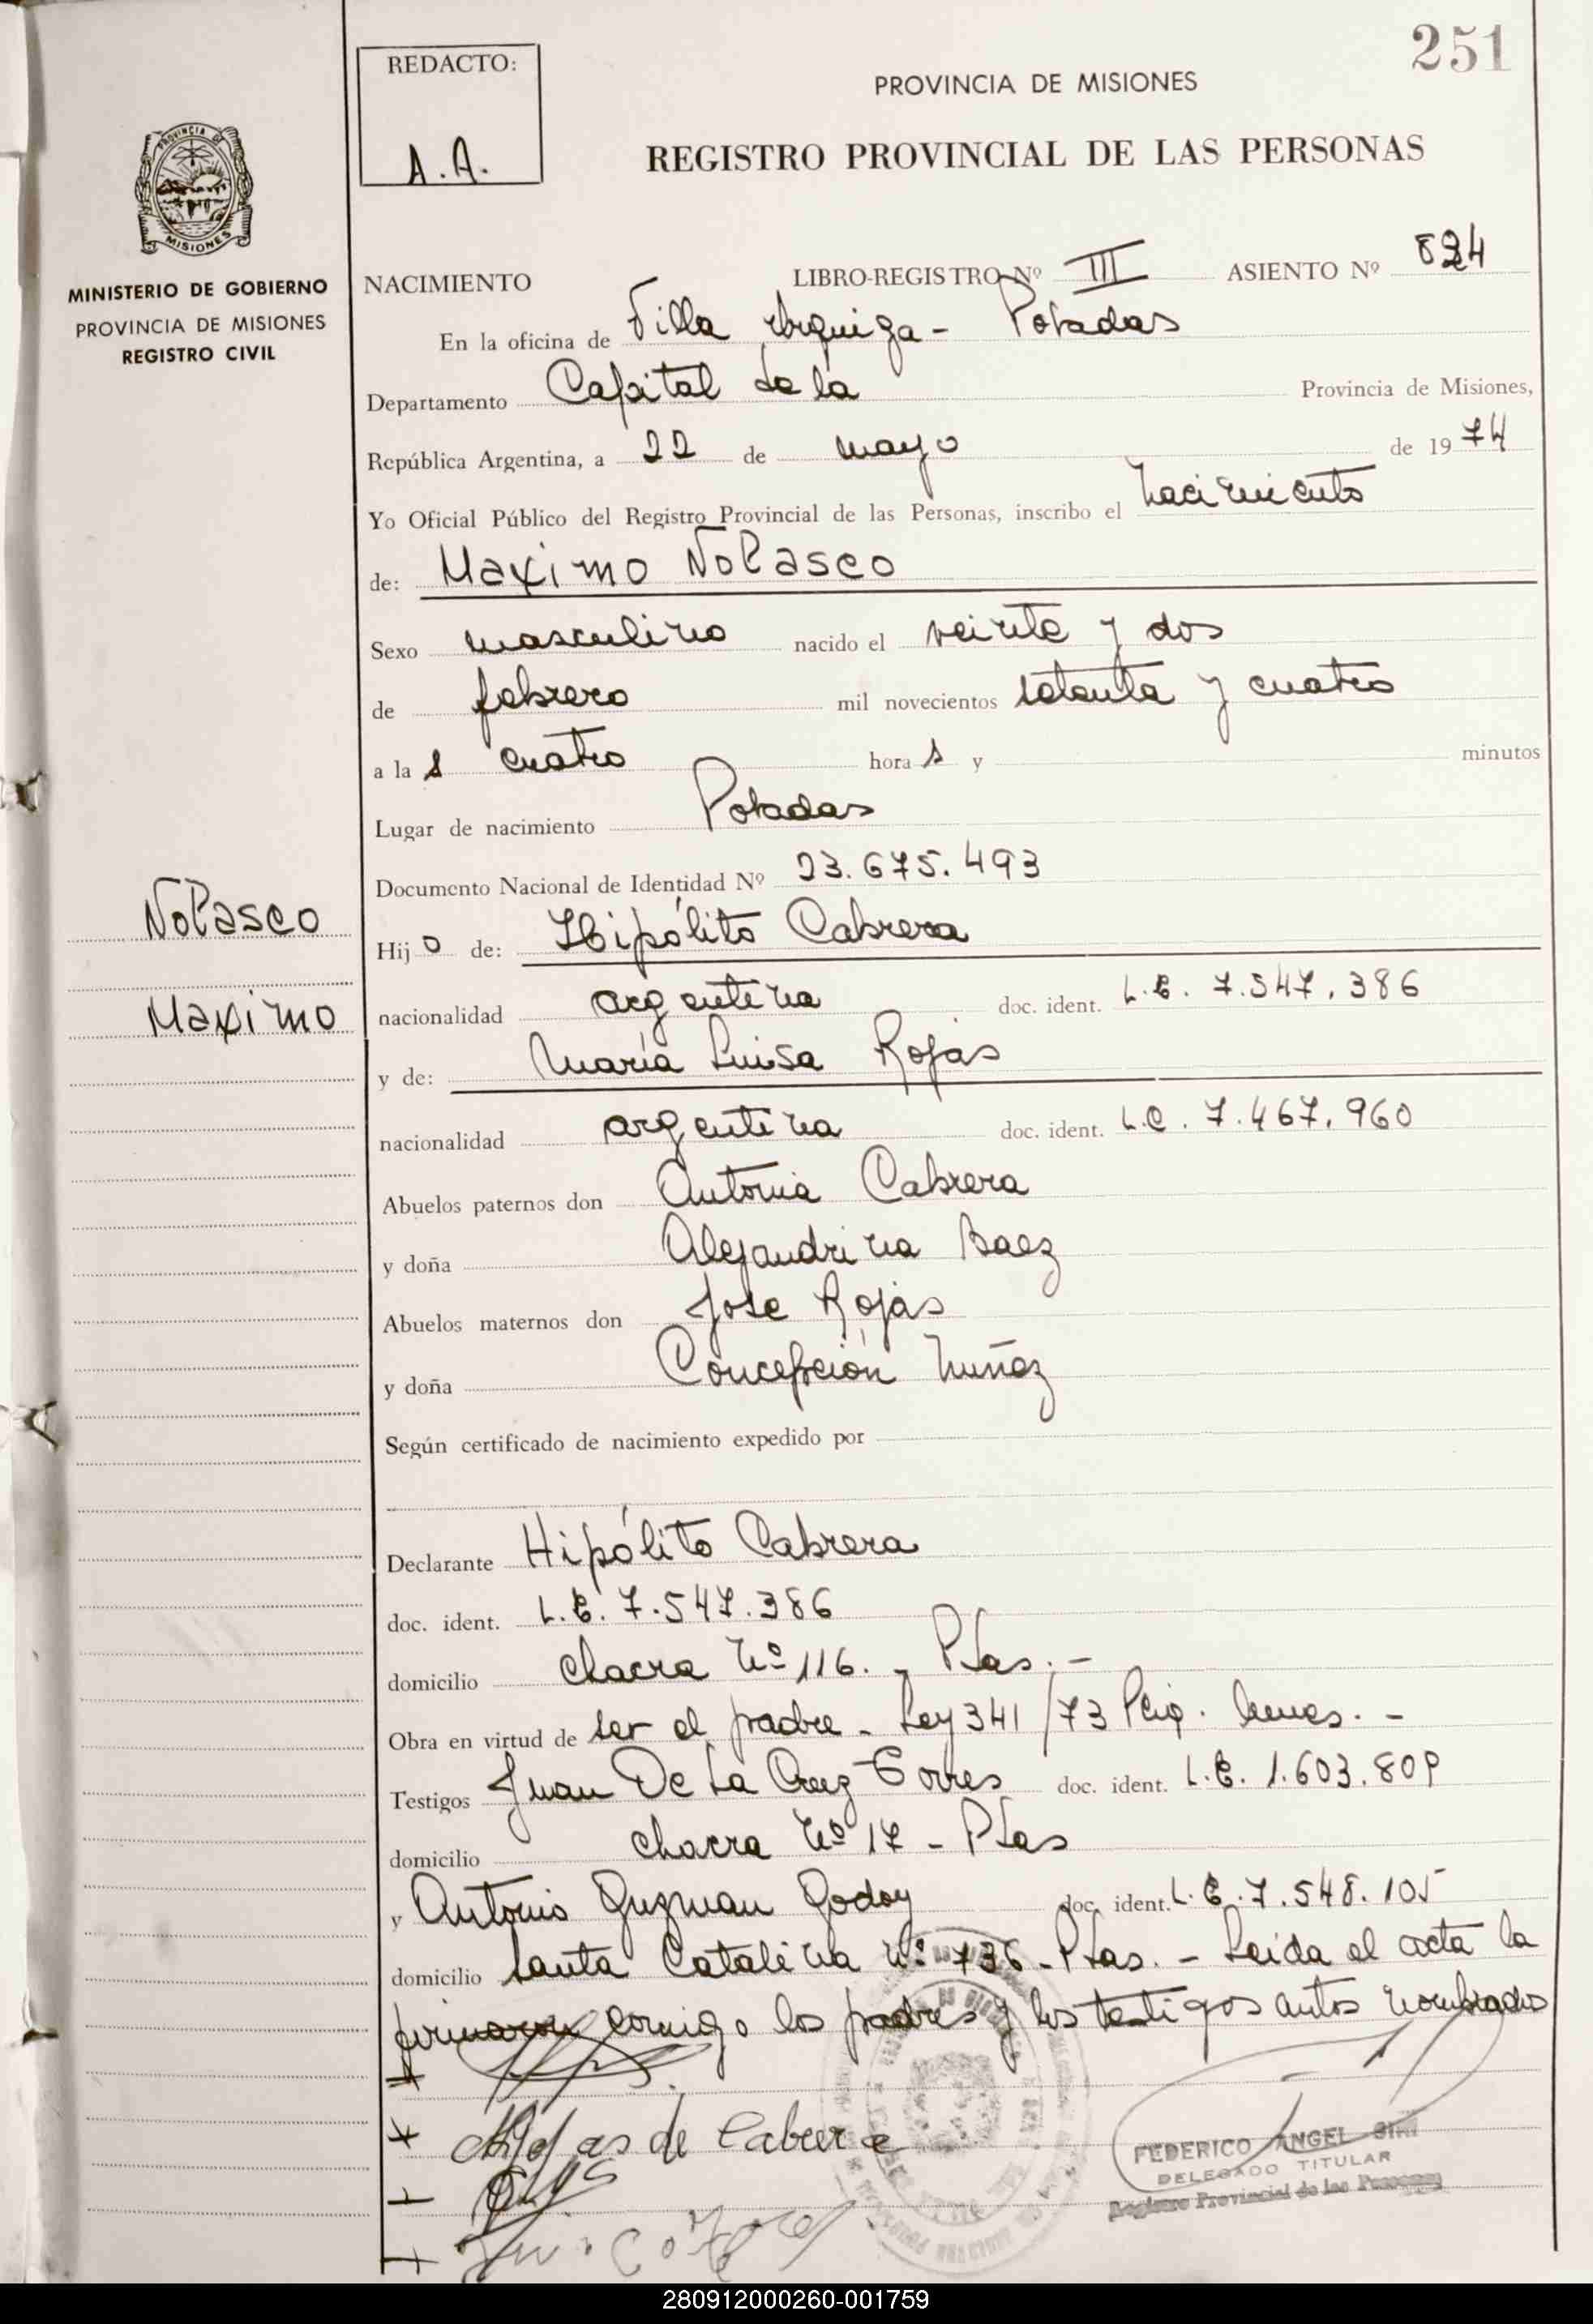 251
REDACTO:
A.A.
PROVINCIA DE MISIONES
REGISTRO PROVINCIAL DE LAS PERSONAS
PROVINCIA DE
MISIONES
MINISTERIO DE GOBIERNO
PROVINCIA DE MISIONES
REGISTRO CIVIL
NACIMIENTO LIBRO-REGISTRO Nº III ASIENTO Nº 824
En la oficina de Villa Urquiza - Posadas
Departamento Capital de la Provincia de Misiones,
República Argentina, a 22 de mayo de 1974
Yo Oficial Público del Registro Provincial de las Personas, inscribo el nacimiento
de: Maximo Nolasco
Sexo masculino nacido el veinte y dos
de febrero mil novecientos setenta y cuatro
a las cuatro horas y minutos
Lugar de nacimiento Posadas
Documento Nacional de Identidad Nº 23.675.493
Nolasco
Hijo de: Hipólito Cabrera
Maximo
nacionalidad argentina doc. ident. L.E. 7.547.386
y de: María Luisa Rojas
nacionalidad argentina doc. ident. L.C. 7.467.960
Abuelos paternos don Antonia Cabrera
y doña Alejandrina Baez
Abuelos maternos don Jose Rojas
y doña Concepción Nuñez
Según certificado de nacimiento expedido por
Declarante Hipólito Cabrera
doc. ident. L.E. 7.547.386
domicilio chacra Nº 116. - Pdas. -
Obra en virtud de ser el padre - Ley 341/73
Testigos Juan De La Cruz Torres doc. ident. L.E. 1.603.809
domicilio chacra Nº 17 - Pdas
y Antonio Guzman Godoy doc. ident. L.E. 7.548.105
domicilio Santa Catalina Nº 736 - Pdas. - Leida el acta la
firmaron conmigo los padres y los testigos antes nombrados
de Cabrera
FEDERICO ANGEL
DELEGADO TITULAR
Registro Provincial de las Personas
280912000260-001759